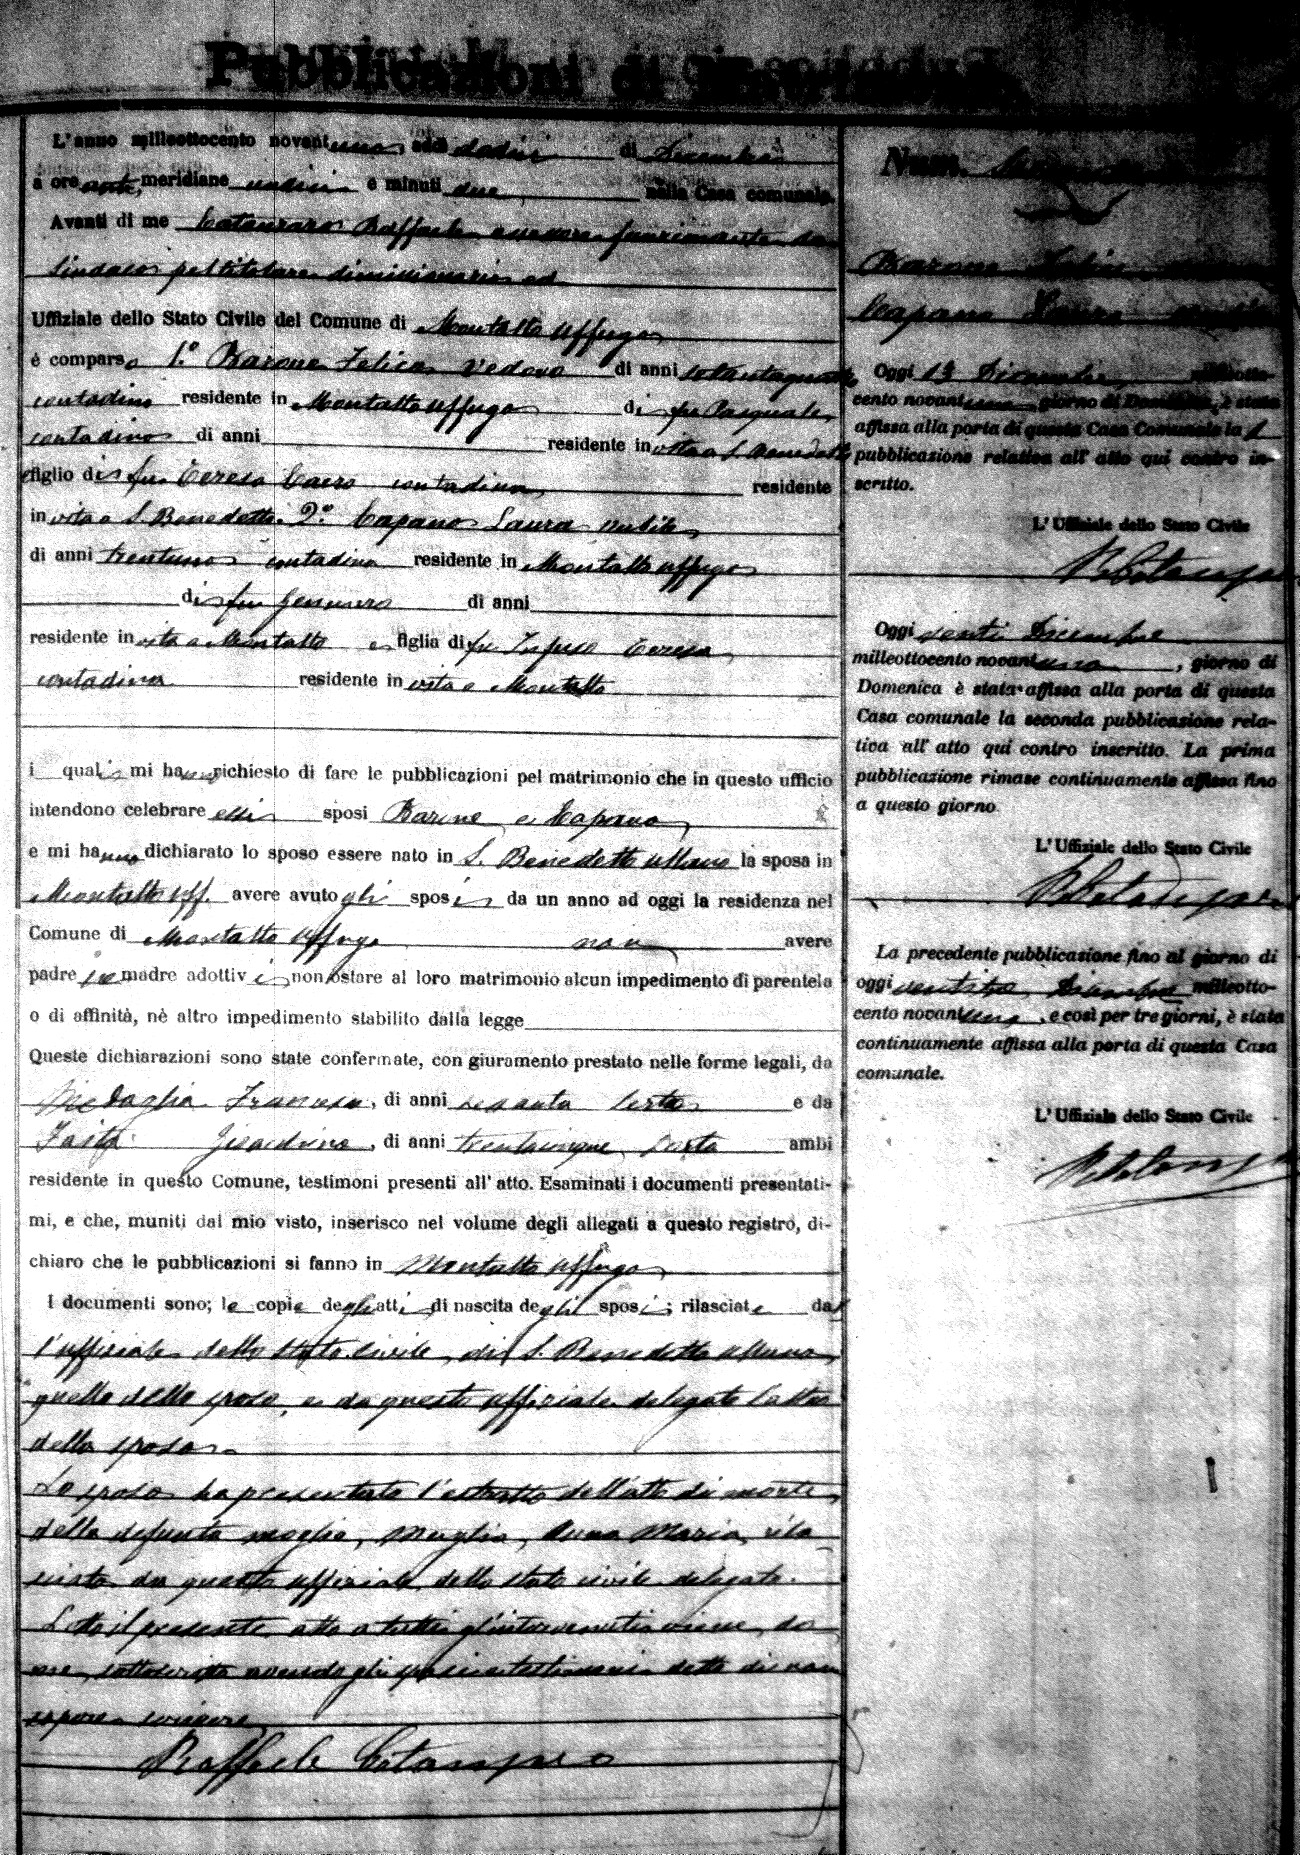 Pubblicazioni di Matrimonio
L'anno milleottocento novantuno, addì dodici di Dicembre
a ore anti meridiane undici e minuti due, nella Casa comunale.
Avanti di me Raffaele assessore funzionante da
Sindaco pel titolare dimissionario ed
Uffiziale dello Stato Civile del Comune di Montalto Uffugo
è comparso 1.º Barone Felice vedovo di anni
contadino residente in Montalto Uffugo di fu Pasquale,
contadino di anni residente in vita a S. Benedetto
figlio di fu Teresa contadina, residente
in vita a S. Benedetto. 2.º Capano Laura nubile,
di anni trentuno contadina residente in Montalto Uffugo
di fu Gennaro di anni
residente in vita a Montalto e figlia di fu Teresa,
contadina residente in vita a Montalto
i quali mi hanno richiesto di fare le pubblicazioni pel matrimonio che in questo ufficio
intendono celebrare essi sposi Barone e Capano,
e mi hanno dichiarato lo sposo essere nato in S. Benedetto Ullano la sposa in
Montalto Uff. avere avuto gli sposi da un anno ad oggi la residenza nel
Comune di Montalto Uffugo non avere
padre madre adottivi non ostare al loro matrimonio alcun impedimento di parentela
o di affinità, nè altro impedimento stabilito dalla legge
Queste dichiarazioni sono state confermate, con giuramento prestato nelle forme legali, da
Medaglia Francesco, di anni sessanta sarto e da
Girardino, di anni trentacinque, sarto ambi
residente in questo Comune, testimoni presenti all'atto. Esaminati i documenti presentati-
mi, e che, muniti dal mio visto, inserisco nel volume degli allegati a questo registro, di-
chiaro che le pubblicazioni si fanno in Montalto Uffugo
I documenti sono; le copie degli atti di nascita degli sposi; rilasciate dal
l'uffiziale dello Stato Civile di S. Benedetto Ullano,
quello dello sposo, e da questo uffiziale delegato l'atto
della sposa.
Lo sposo ha presentato l'estratto dell'atto di morte
della defunta moglie, Anna Maria, rila-
sciato da questo uffiziale dello stato civile delegato.
Letto il presente atto a tutti gl'intervenuti viene, da
me, sottoscritto avendo gli sposi e testimoni detto di non
sapere scrivere
Raffaele
Num.
Barone Felice
Capano Laura
Oggi 13 Dicembre milleotto-
cento novantuno, giorno di Domenica, è stata
affissa alla porta di questa Casa Comunale la
pubblicazione relativa all'atto qui contro in-
scritto.
L'Uffiziale dello Stato Civile
Oggi venti Dicembre
milleottocento novantuno, giorno di
Domenica è stata affissa alla porta di questa
Casa comunale la seconda pubblicazione rela-
tiva all'atto qui contro inscritto. La prima
pubblicazione rimase continuamente affissa fino
a questo giorno.
L'Uffiziale dello Stato Civile
La precedente pubblicazione fino al giorno di
oggi ventitre Dicembre milleotto-
cento novantuno, e così per tre giorni, è stata
continuamente affissa alla porta di questa Casa
comunale.
L'Uffiziale dello Stato Civile